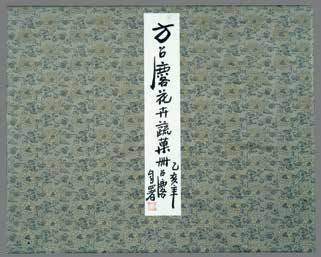 方召麐花卉蔬菓冊
乙亥年
召麐自署